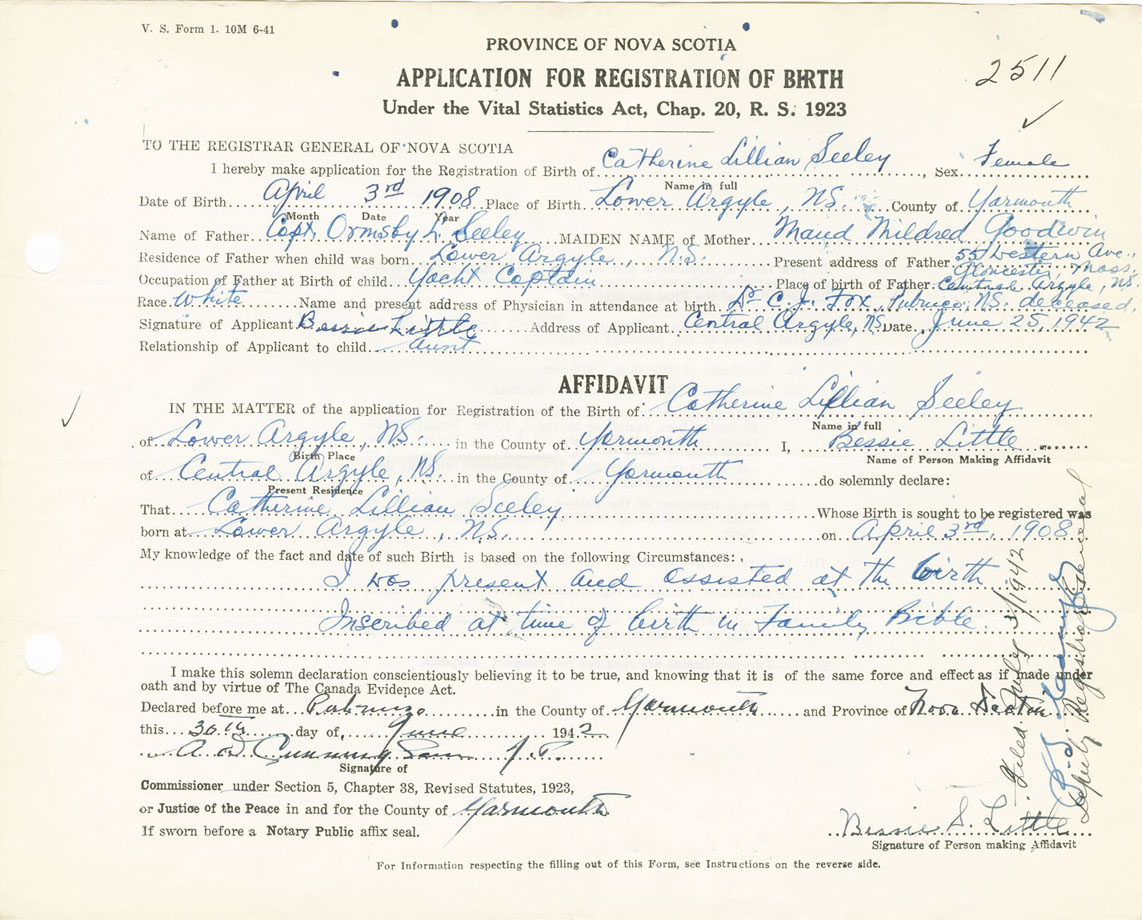 V. S. Form 1. 10M 6-41
PROVINCE OF NOVA SCOTIA
2511
APPLICATION FOR REGISTRATION OF BIRTH
Under the Vital Statistics Act, Chap. 20, R. S. 1923
TO THE REGISTRAR GENERAL OF NOVA SCOTIA
I hereby make application for the Registration of Birth of Catherine Lillian Seeley, Sex Female
Name in full
Date of Birth April 3rd 1908 Place of Birth Lower Argyle, N.S. County of Yarmouth
Month Date Year
Name of Father Capt. Ormsby L. Seeley MAIDEN NAME of Mother Maud Mildred Goodwin
Residence of Father when child was born Lower Argyle, N.S. Present address of Father 55 Western Ave., Gloucester, Mass.
Occupation of Father at Birth of child Yacht Captain Place of birth of Father Central Argyle, N.S.
Race White Name and present address of Physician in attendance at birth Dr. C. J. Fox, Pubnico, N.S. deceased.
Signature of Applicant Bessie Little Address of Applicant Central Argyle, N.S. Date June 25, 1942
Relationship of Applicant to child aunt
AFFIDAVIT
IN THE MATTER of the application for Registration of the Birth of Catherine Lillian Seeley
Name in full
of Lower Argyle, N.S. in the County of Yarmouth I, Bessie Little
Birth Place Name of Person Making Affidavit
of Central Argyle, N.S. in the County of Yarmouth do solemnly declare:
Present Residence
That Catherine Lillian Seeley Whose Birth is sought to be registered was
born at Lower Argyle, N.S. on April 3rd, 1908
My knowledge of the fact and date of such Birth is based on the following Circumstances:
I was present and assisted at the birth.
Inscribed at time of birth in Family Bible.
I make this solemn declaration conscientiously believing it to be true, and knowing that it is of the same force and effect as if made under
oath and by virtue of The Canada Evidence Act.
Declared before me at Pubnico in the County of Yarmouth and Province of Nova Scotia
this 30th day of June 1942
J. P.
Signature of
Commissioner under Section 5, Chapter 38, Revised Statutes, 1923,
or Justice of the Peace in and for the County of Yarmouth
If sworn before a Notary Public affix seal.
Bessie S. Little
Signature of Person making Affidavit
For Information respecting the filling out of this Form, see Instructions on the reverse side.
Filed July 1942
Deputy Registrar General